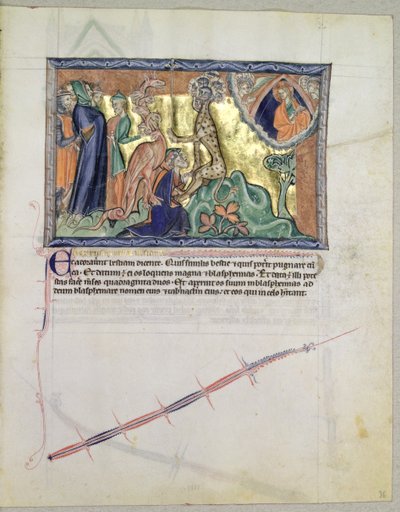 Et adoraverunt bestiam dicentes. Quis similis bestie & quis poterit pugnare cū
ea. Et datum ē ei os loquens magna & blasphemias. Et data ē illi potes
tas facē mēses quadraginta duos. Et aperuit os suum in blasphemias ad
deum blasphemare nomen eius & tabernaclm eius, et eos qui in celo hitant.
36